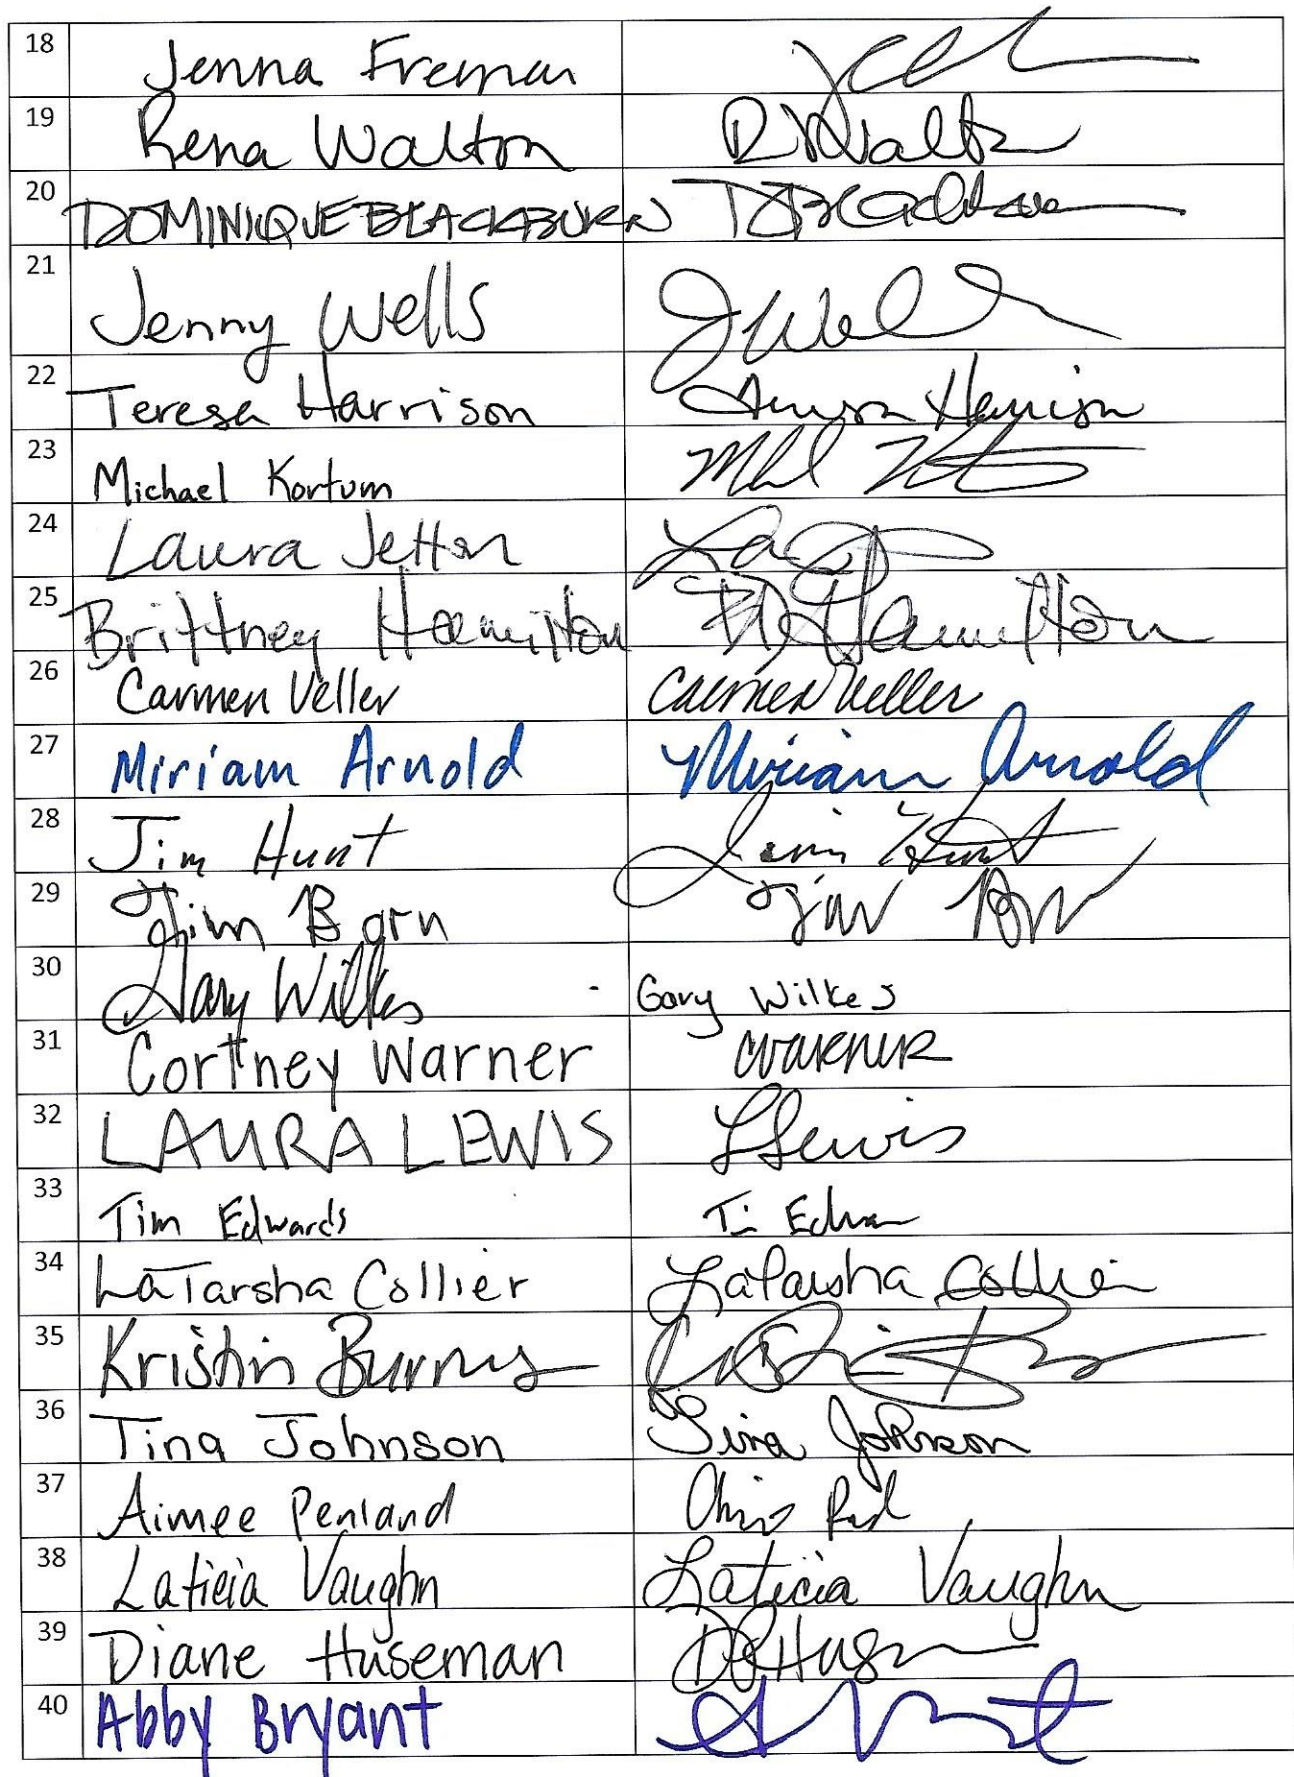 18 Jenna Freman
19 Rena Walton R Walton
20 DOMINIQUE BLACKBURN
21 Jenny Wells J Well
22 Teresa Harrison Teresa Harrison
23 Michael Kortum
24 Laura Jetton
25 Brittney Hamilton Hamilton
26 Carmen Veller Carmen Veller
27 Miriam Arnold Miriam Arnold
28 Jim Hunt Jim Hunt
29 Jim Barn
30 Gary Wilkes Gary Wilkes
31 Cortney Warner CWARNER
32 LAURA LEWIS L Lewis
33 Tim Edwards
34 LaTarsha Collier LaTarsha Collier
35 Kristin Burns
36 Tina Johnson Tina Johnson
37 Aimee Penland
38 Laticia Vaughn Laticia Vaughn
39 Diane Huseman
40 Abby Bryant